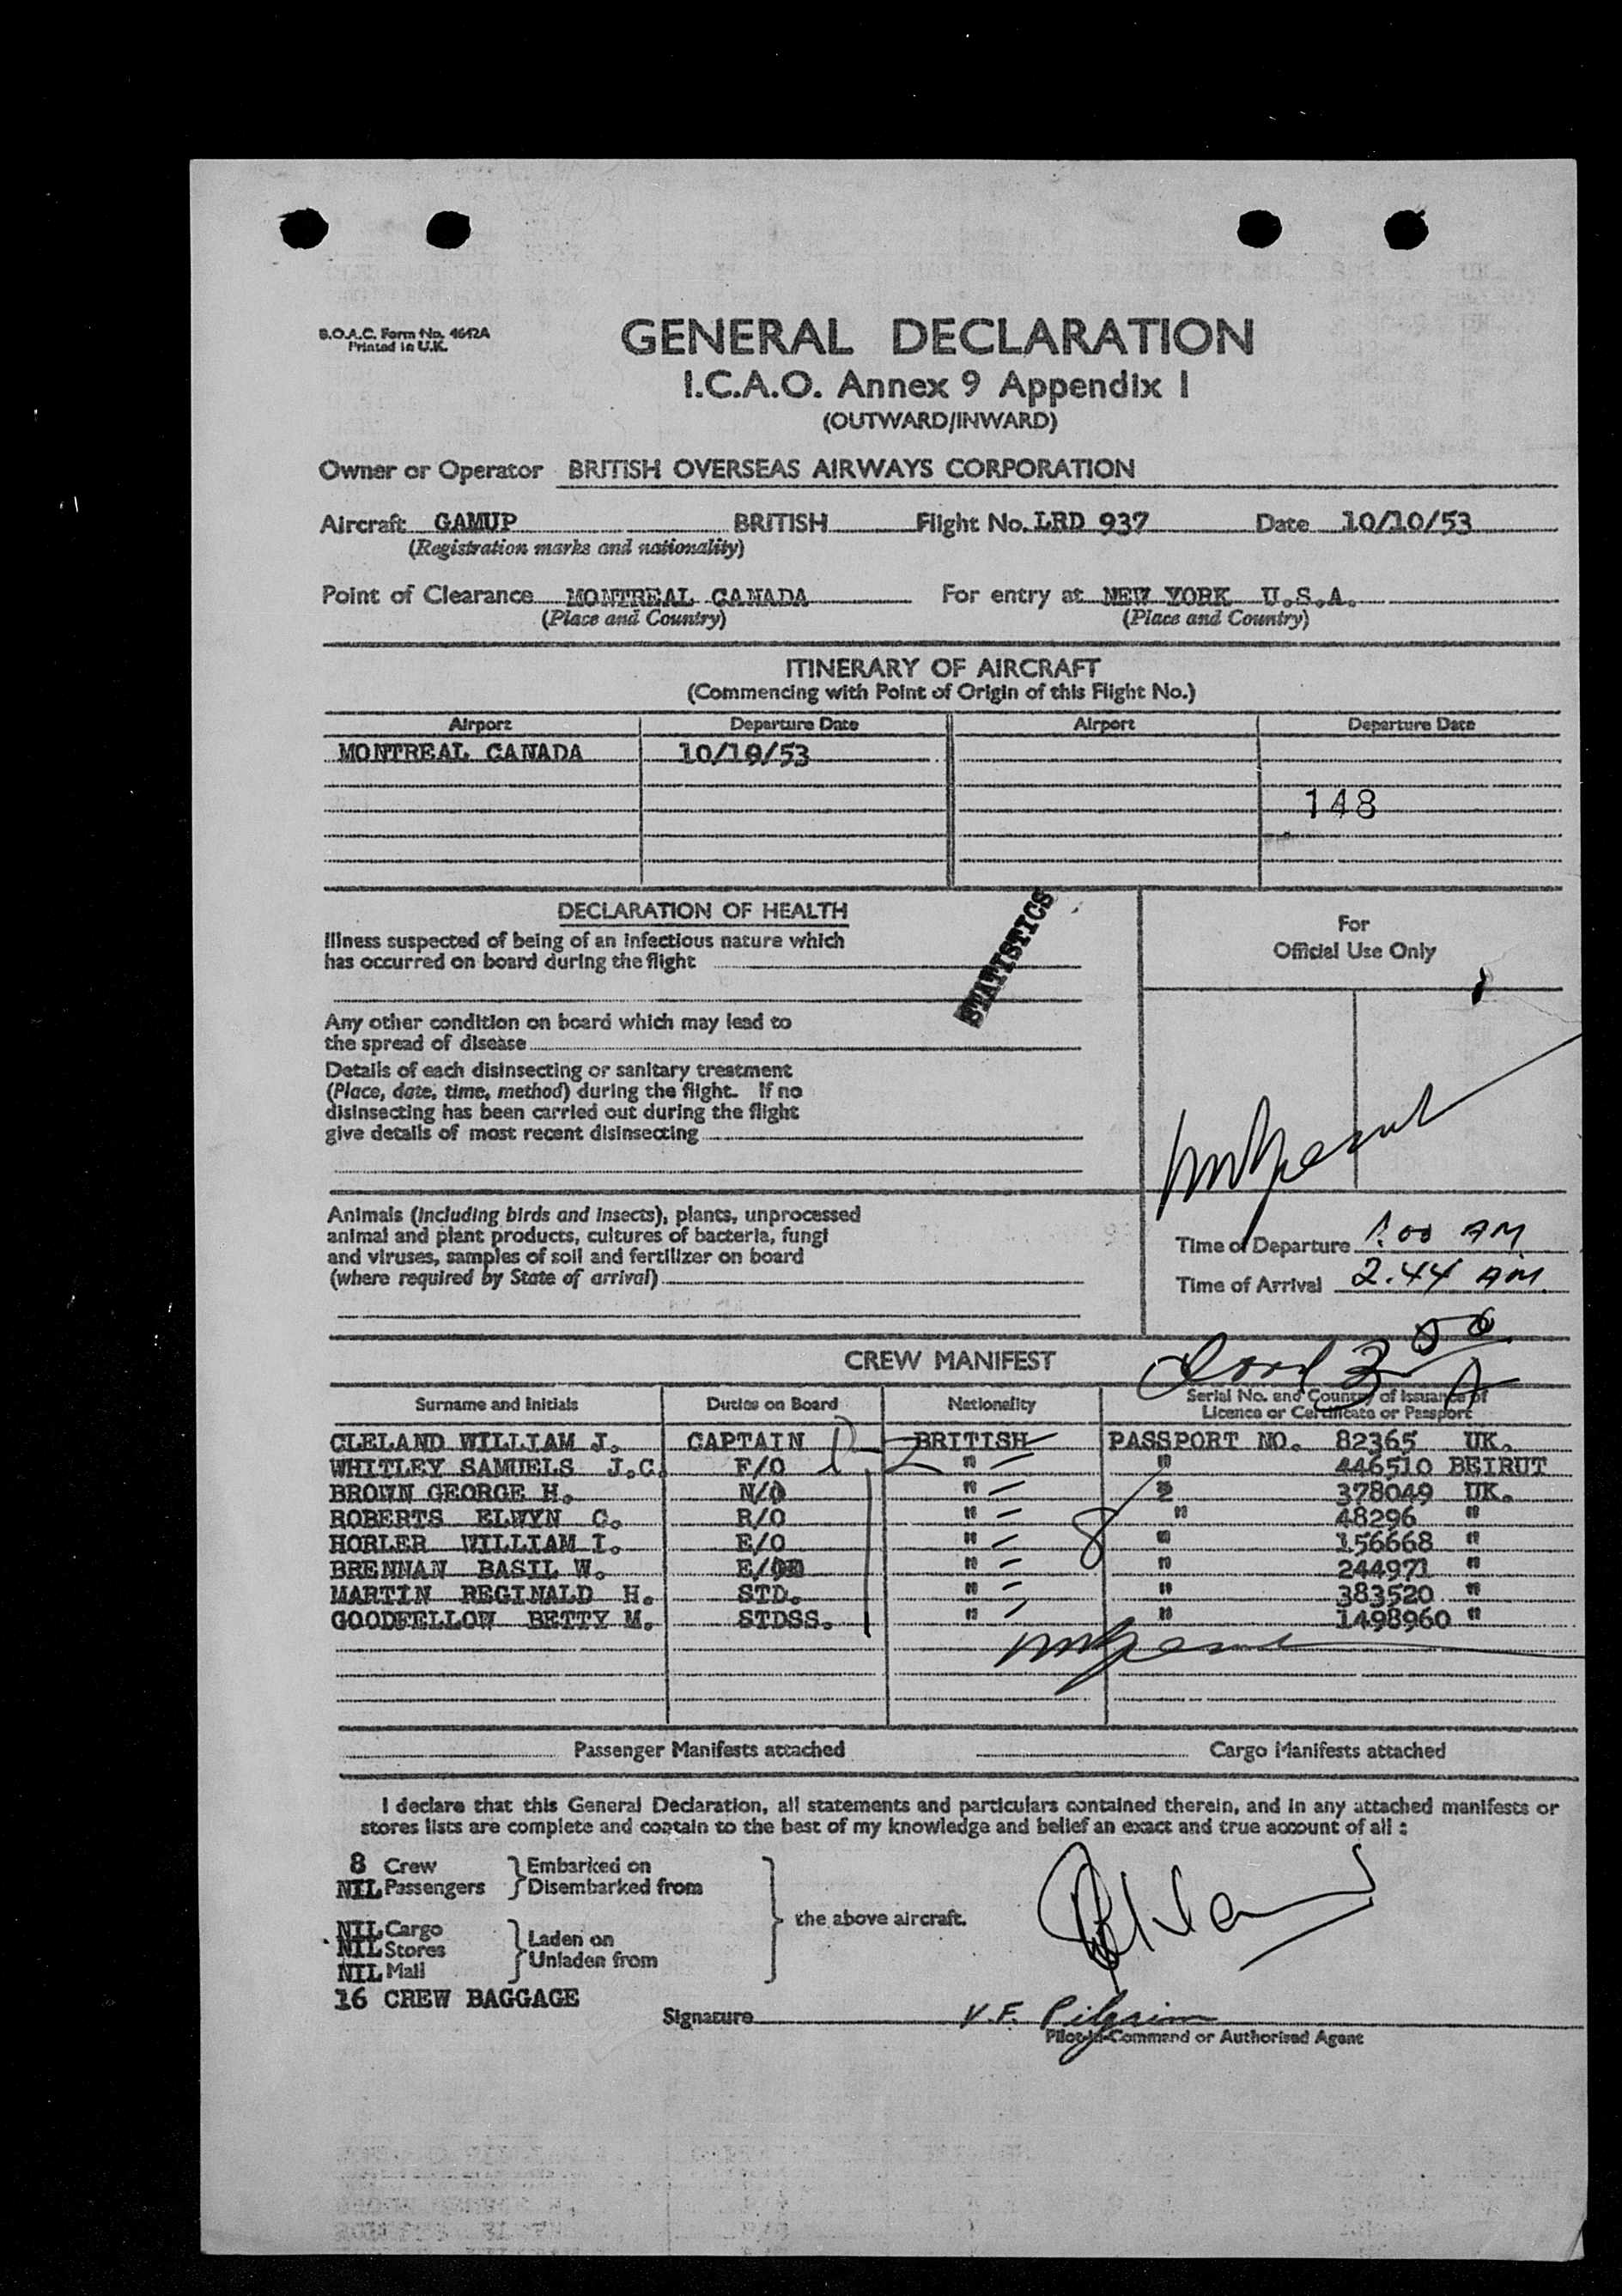 B.O.A.C. Form No. 4642A
Printed in U.K.
GENERAL DECLARATION
I.C.A.O. Annex 9 Appendix I
(OUTWARD/INWARD)
Owner or Operator BRITISH OVERSEAS AIRWAYS CORPORATION
Aircraft GAMUP BRITISH Flight No. LRD 937 Date 10/10/53
(Registration marks and nationality)
Point of Clearance MONTREAL CANADA For entry at NEW YORK U.S.A.
(Place and Country) (Place and Country)
ITINERARY OF AIRCRAFT
(Commencing with Point of Origin of this Flight No.)
Airport Departure Date Airport Departure Date
MONTREAL CANADA 10/10/53
148
STATISTICS
DECLARATION OF HEALTH
Illness suspected of being of an infectious nature which
has occurred on board during the flight
Any other condition on board which may lead to
the spread of disease
Details of each disinsecting or sanitary treatment
(Place, date, time, method) during the flight. If no
disinsecting has been carried out during the flight
give details of most recent disinsecting
For
Official Use Only
Animals (including birds and insects), plants, unprocessed
animal and plant products, cultures of bacteria, fungi
and viruses, samples of soil and fertilizer on board
(where required by State of arrival)
Time of Departure 1.00 AM.
Time of Arrival 2.44 AM.
CREW MANIFEST
Surname and Initials Duties on Board Nationality Serial No. and Country of Issuance of
Licence or Certificate or Passport
CLELAND WILLIAM J. CAPTAIN BRITISH PASSPORT NO. 82365 UK.
WHITLEY SAMUELS J.C. F/O " " 446510 BEIRUT
BROWN GEORGE H. N/O " " 378049 UK.
ROBERTS ELWYN C. R/O " " 48296 "
HORLER WILLIAM I. E/O " " 156668 "
BRENNAN BASIL W. E/O " " 244971 "
MARTIN REGINALD H. STD. " " 383520 "
GOODFELLOW BETTY M. STDSS. " " 1498960 "
8
Passenger Manifests attached Cargo Manifests attached
I declare that this General Declaration, all statements and particulars contained therein, and in any attached manifests or
stores lists are complete and contain to the best of my knowledge and belief an exact and true account of all :
8 Crew Embarked on
NIL Passengers Disembarked from
the above aircraft.
NIL Cargo
NIL Stores Laden on
NIL Mail Unladen from
16 CREW BAGGAGE
Signature V.F. Pilgrim
Pilot-in-Command or Authorised Agent